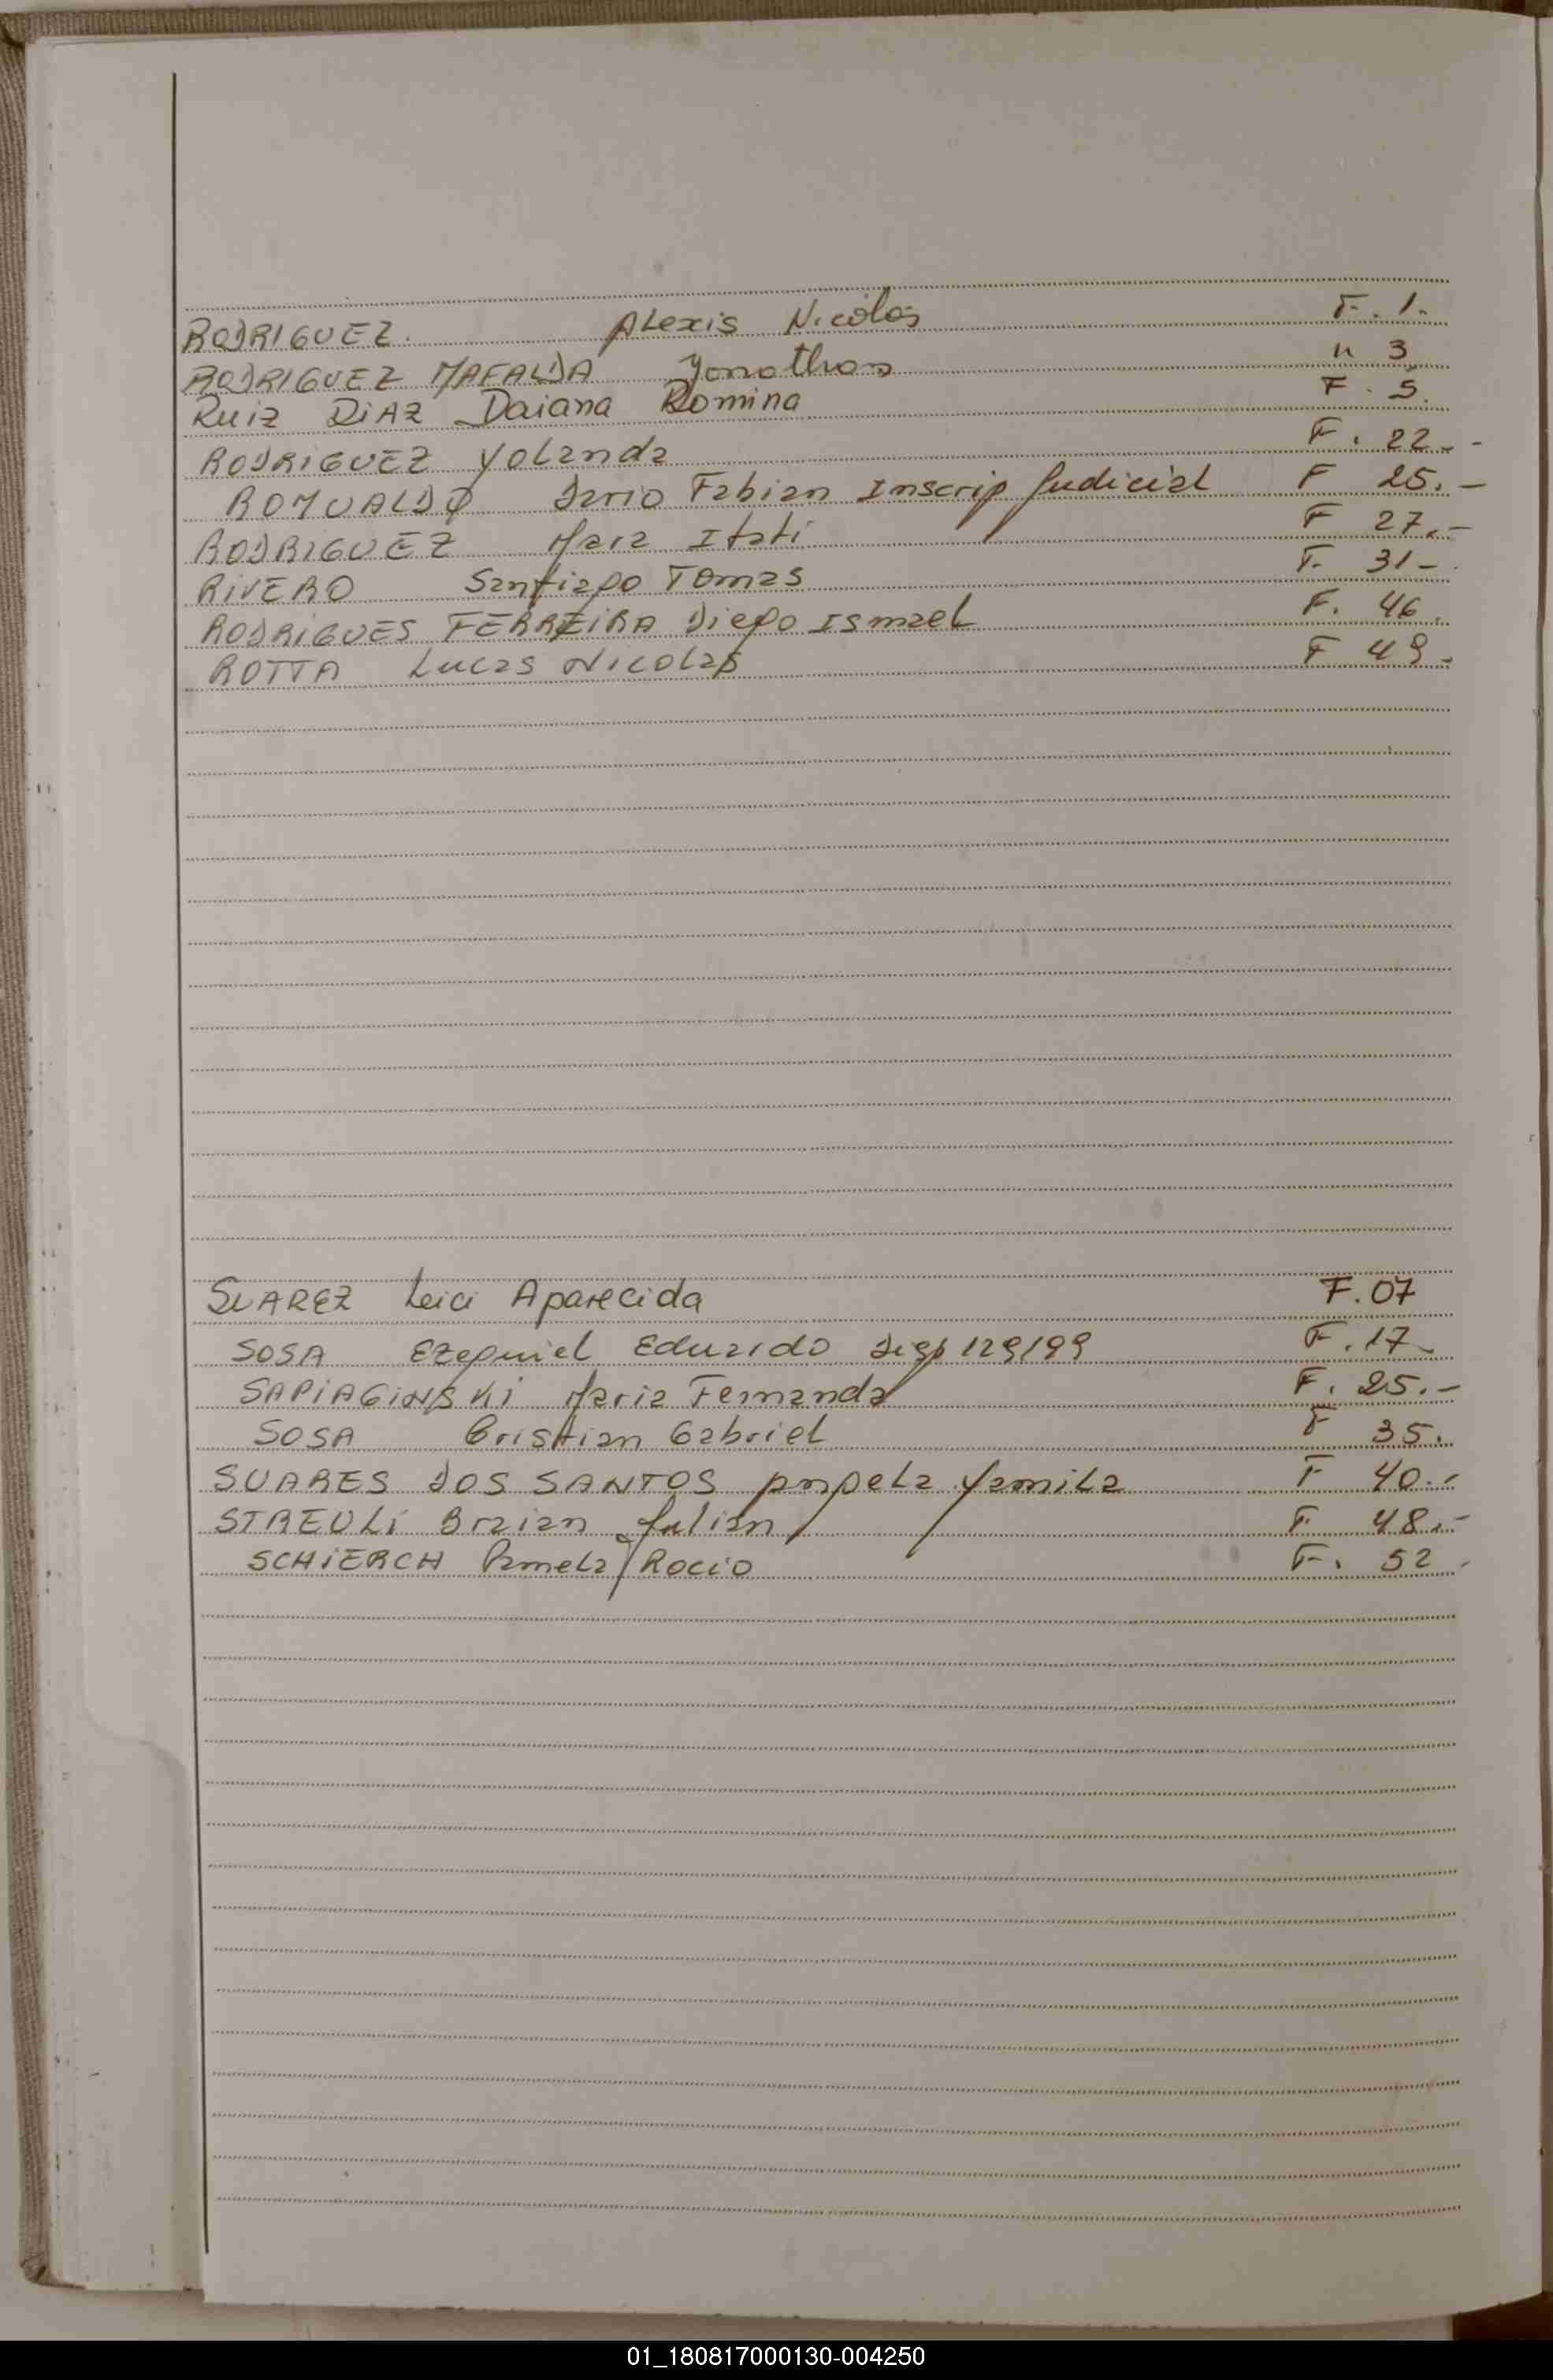 RODRIGUEZ. Alexis Nicolás F. 1.
RODRIGUEZ MAFALDA Yonathan " 3
Ruiz DiAZ Daiana Romina F. 5.
RODRIGUEZ Yolanda F. 22.-
ROMUALDO Dario Fabian Inscrip Judicial F 25.-
RODRIGUEZ Mara Itati F 27.-
RIVERO Santiago Tomas F. 31-
RODRIGUES FERREIRA Diego Ismael F. 46.
ROTTA Lucas Nicolas F 49.
SUAREZ Leici Aparecida F. 07
SOSA Ezequiel Eduardo 129/99 F. 17-
SAPIAGINSKI Maria Fernanda F. 25.-
SOSA Cristian Gabriel F 35.
SUARES DOS SANTOS Yamila F 40.-
STREULI Braian Julian F 48.-
SCHIERCH Pamela Rocio F. 52.
01_180817000130-004250